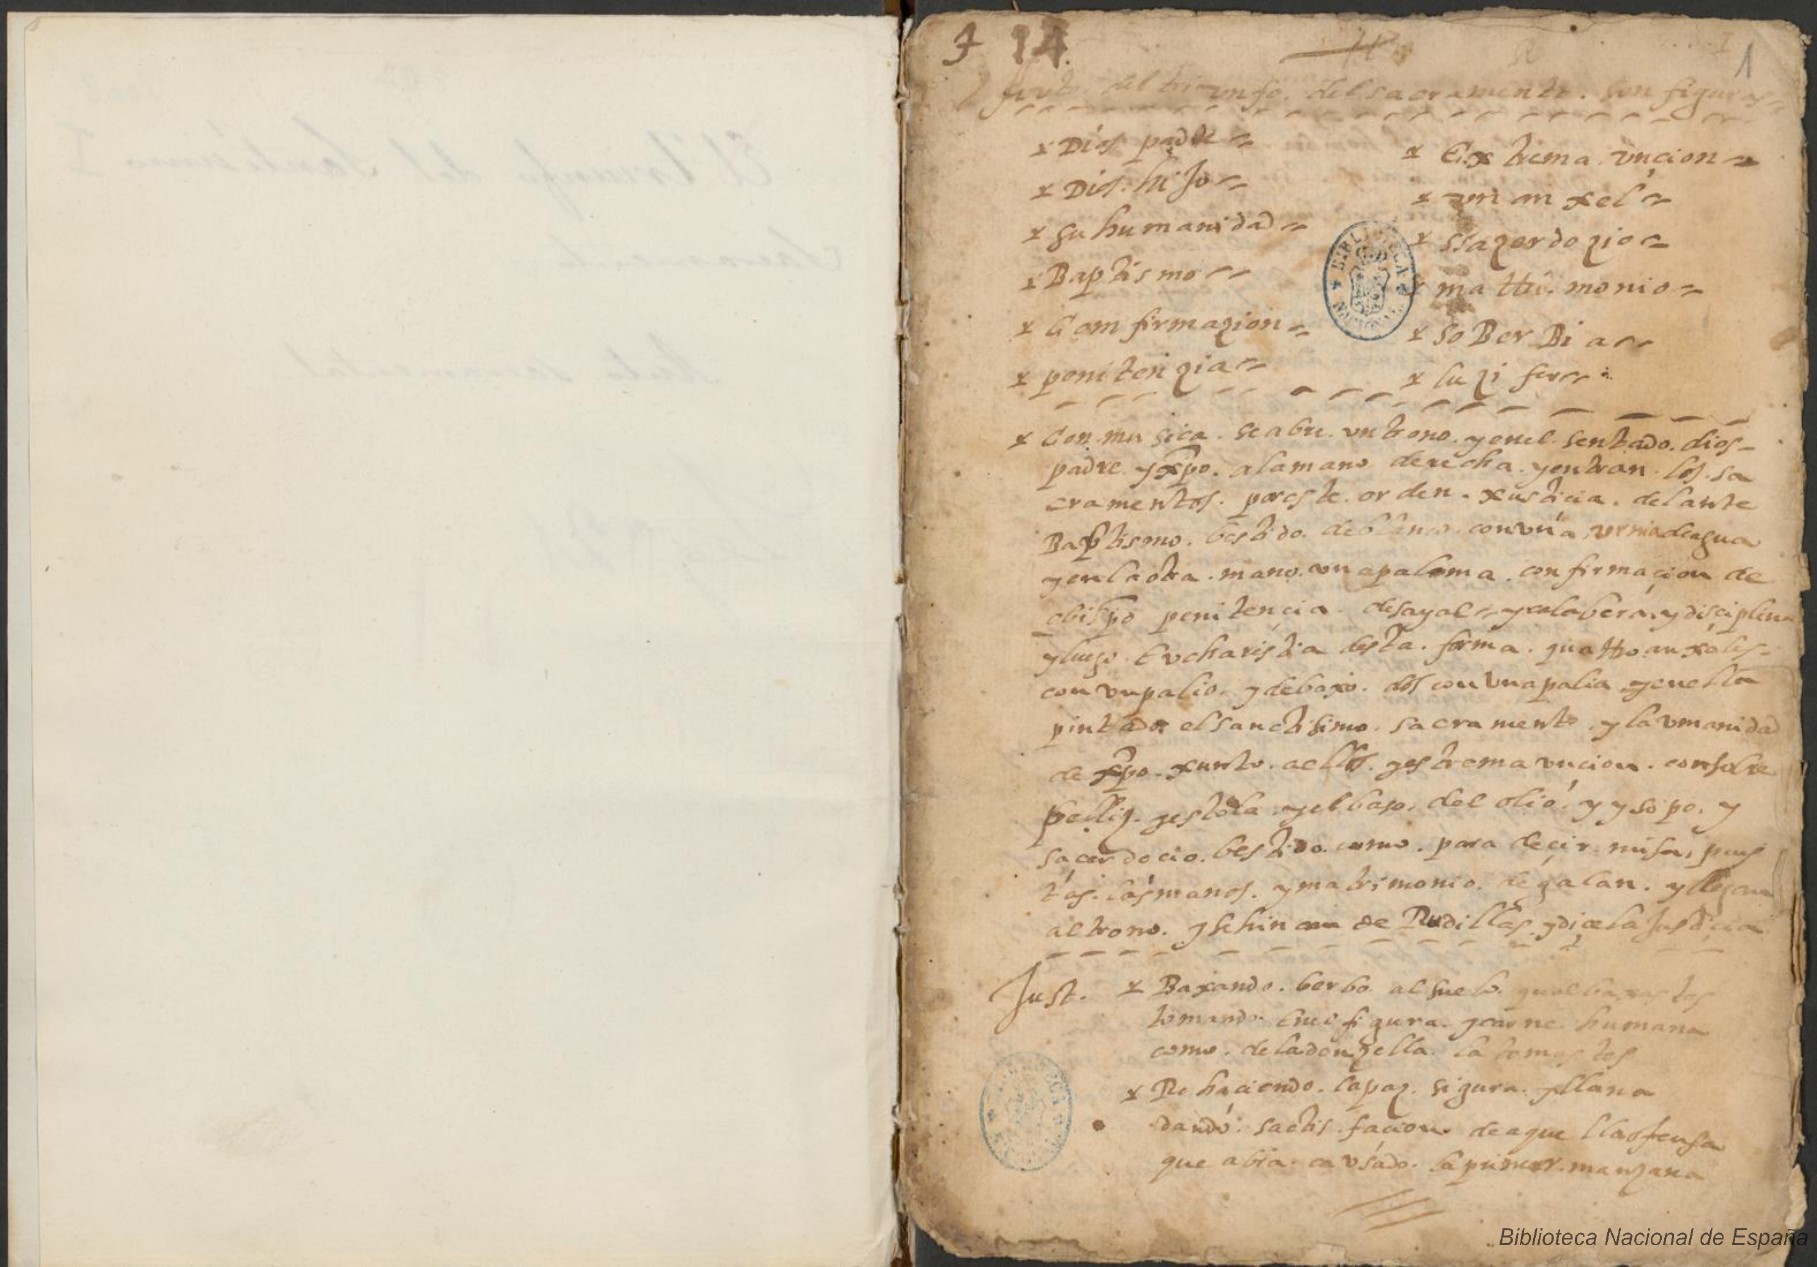 4 14.
1
Auto del triunfo. del sacramento. son figuras
x Dios padre
x Dios. hiJo
x su humanidad
x Baptismo
x Comfirmaçion
x peniteniçia
x Extrema unçion
x un anxel
x ssaçerdoçio
x mattrimonio
x SoBerBia
x luçifer
x Con musica. se abre. un trono. y en el sentado. dios
padre y xpo. a la mano derecha. y entran los. sa
cramentos. por este. orden. xusticia. delante
Baptismo. bestido. de blanco. con una urnia de agua
y en la otra. mano. una paloma. confirmaçion de
obispo penitencia. de sayal y calabera. y disciplina
y luego. Eucharistia desta. forma. quattro anxeles
con un palio. y debaxo. dos con una palia y en ella
pintado el sanctisimo. sacramento. y la umanidad
de xpo. xunto. a ellos. y estrema uncion. con sobre
pelliz. y estola. y el baso. del olio. y ysopo. y
sacerdocio. bestido. como. para decir misa, pues
tas. las manos. y matrimonio. de galan. y llegan
al trono. y se hincan de Rudillas. y diçe la Justiçia
Just. x Baxando. berbo. al suelo. qual baxastes
tomando. en el figura. y carne humana
como. de la donzella. la tomastes
x Re haciendo. la paz. sigura. y llana
dando. satisfacion. de aquella ofensa
que abia. causado. la primer. manzana
BIBLIOTECA NACIONAL
Biblioteca Nacional de España